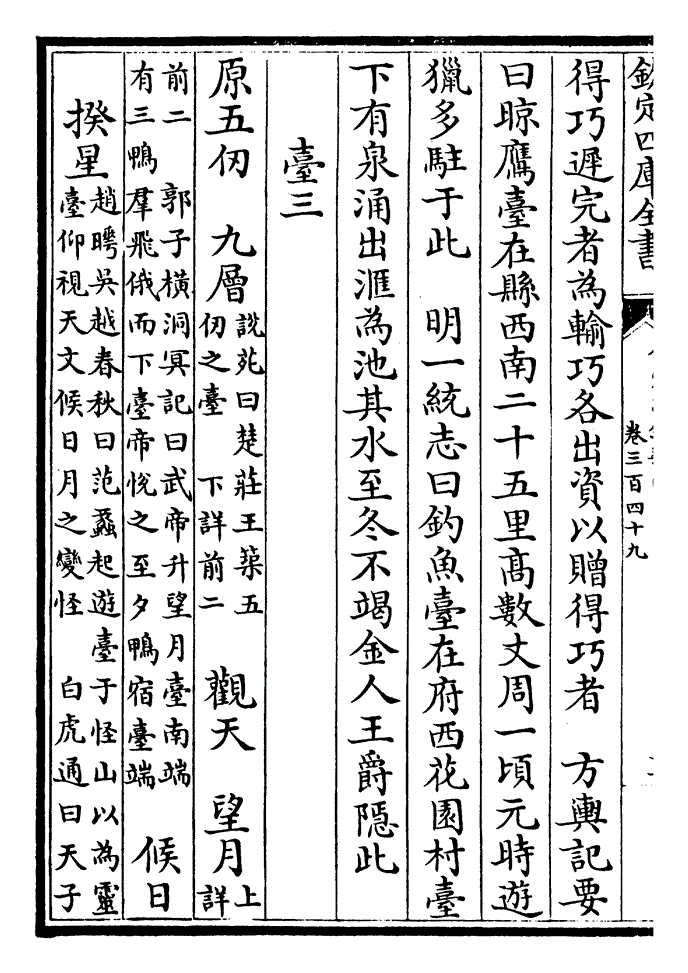 欽定四庫全書
卷三百四十九
得巧遲完者為輸巧各出資以贈得巧者　方輿記要
曰晾鷹臺在縣西南二十五里髙數丈周一頃元時遊
獵多駐于此　明一統志曰釣魚臺在府西花園村臺
下有泉涌出滙為池其水至冬不竭金人王爵隱此
臺三
原五仞　九層説苑曰楚莊王築五仞之臺　下詳前二　觀天　望月上詳
前二　郭子橫洞冥記曰武帝升望月臺南端有三鴨羣飛俄而下臺帝悅之至夕鴨宿臺端　候日
揆星趙曄吳越春秋曰范蠡起遊臺于怪山以為靈臺仰視天文候日月之變怪　白虎通曰天子